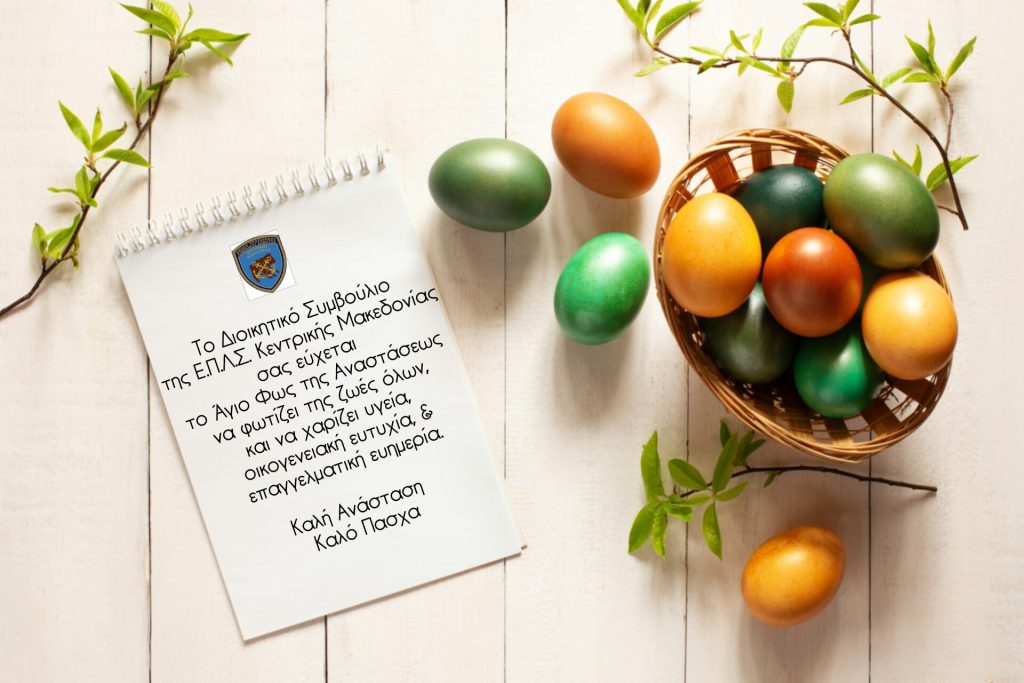 Το Διοικητικό Συμβούλιο
της Ε.Π.Λ.Σ. Κεντρικής Μακεδονίας
σας εύχεται
το Άγιο Φως της Αναστάσεως
να φωτίζει της ζωές όλων,
και να χαρίζει υγεία,
οικογενειακή ευτυχία, &
επαγγελματική ευημερία.
Καλή Ανάσταση
Καλό Πασχα